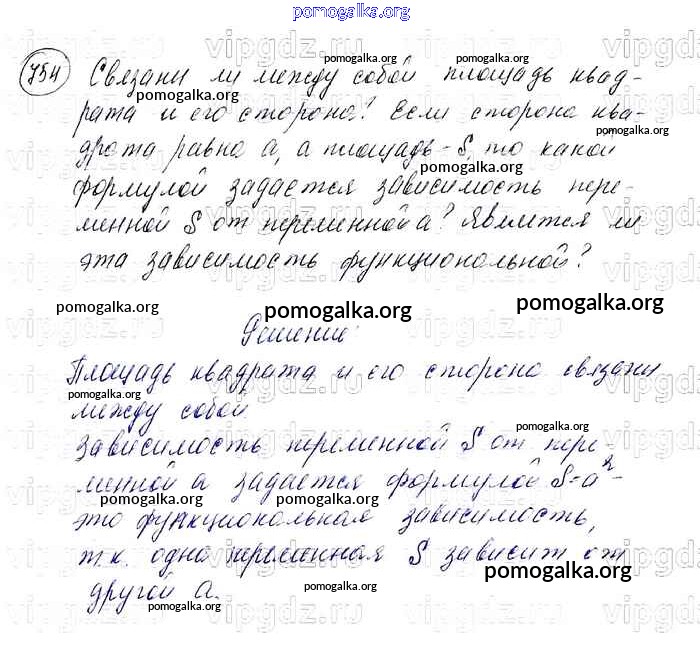 pomogalka.org
754 Связаны ли между собой площадь квад-
pomogalka.org
рата и его сторона? Если сторона ква-
pomogalka.org
драта равна a, а площадь - S, то какой
pomogalka.org
формулой задается зависимость пере-
менной S от переменной a? Является ли
эта зависимость функциональной?
pomogalka.org pomogalka.org pomogalka.org
Решение:
Площадь квадрата и его сторона связаны
pomogalka.org
между собой.
pomogalka.org
Зависимость переменной S от пере-
pomogalka.org
менной a задается формулой S=a² -
pomogalka.org
это функциональная зависимость,
pomogalka.org
т.к. одна переменная S зависит от
pomogalka.org
другой a.
pomogalka.org pomogalka.org